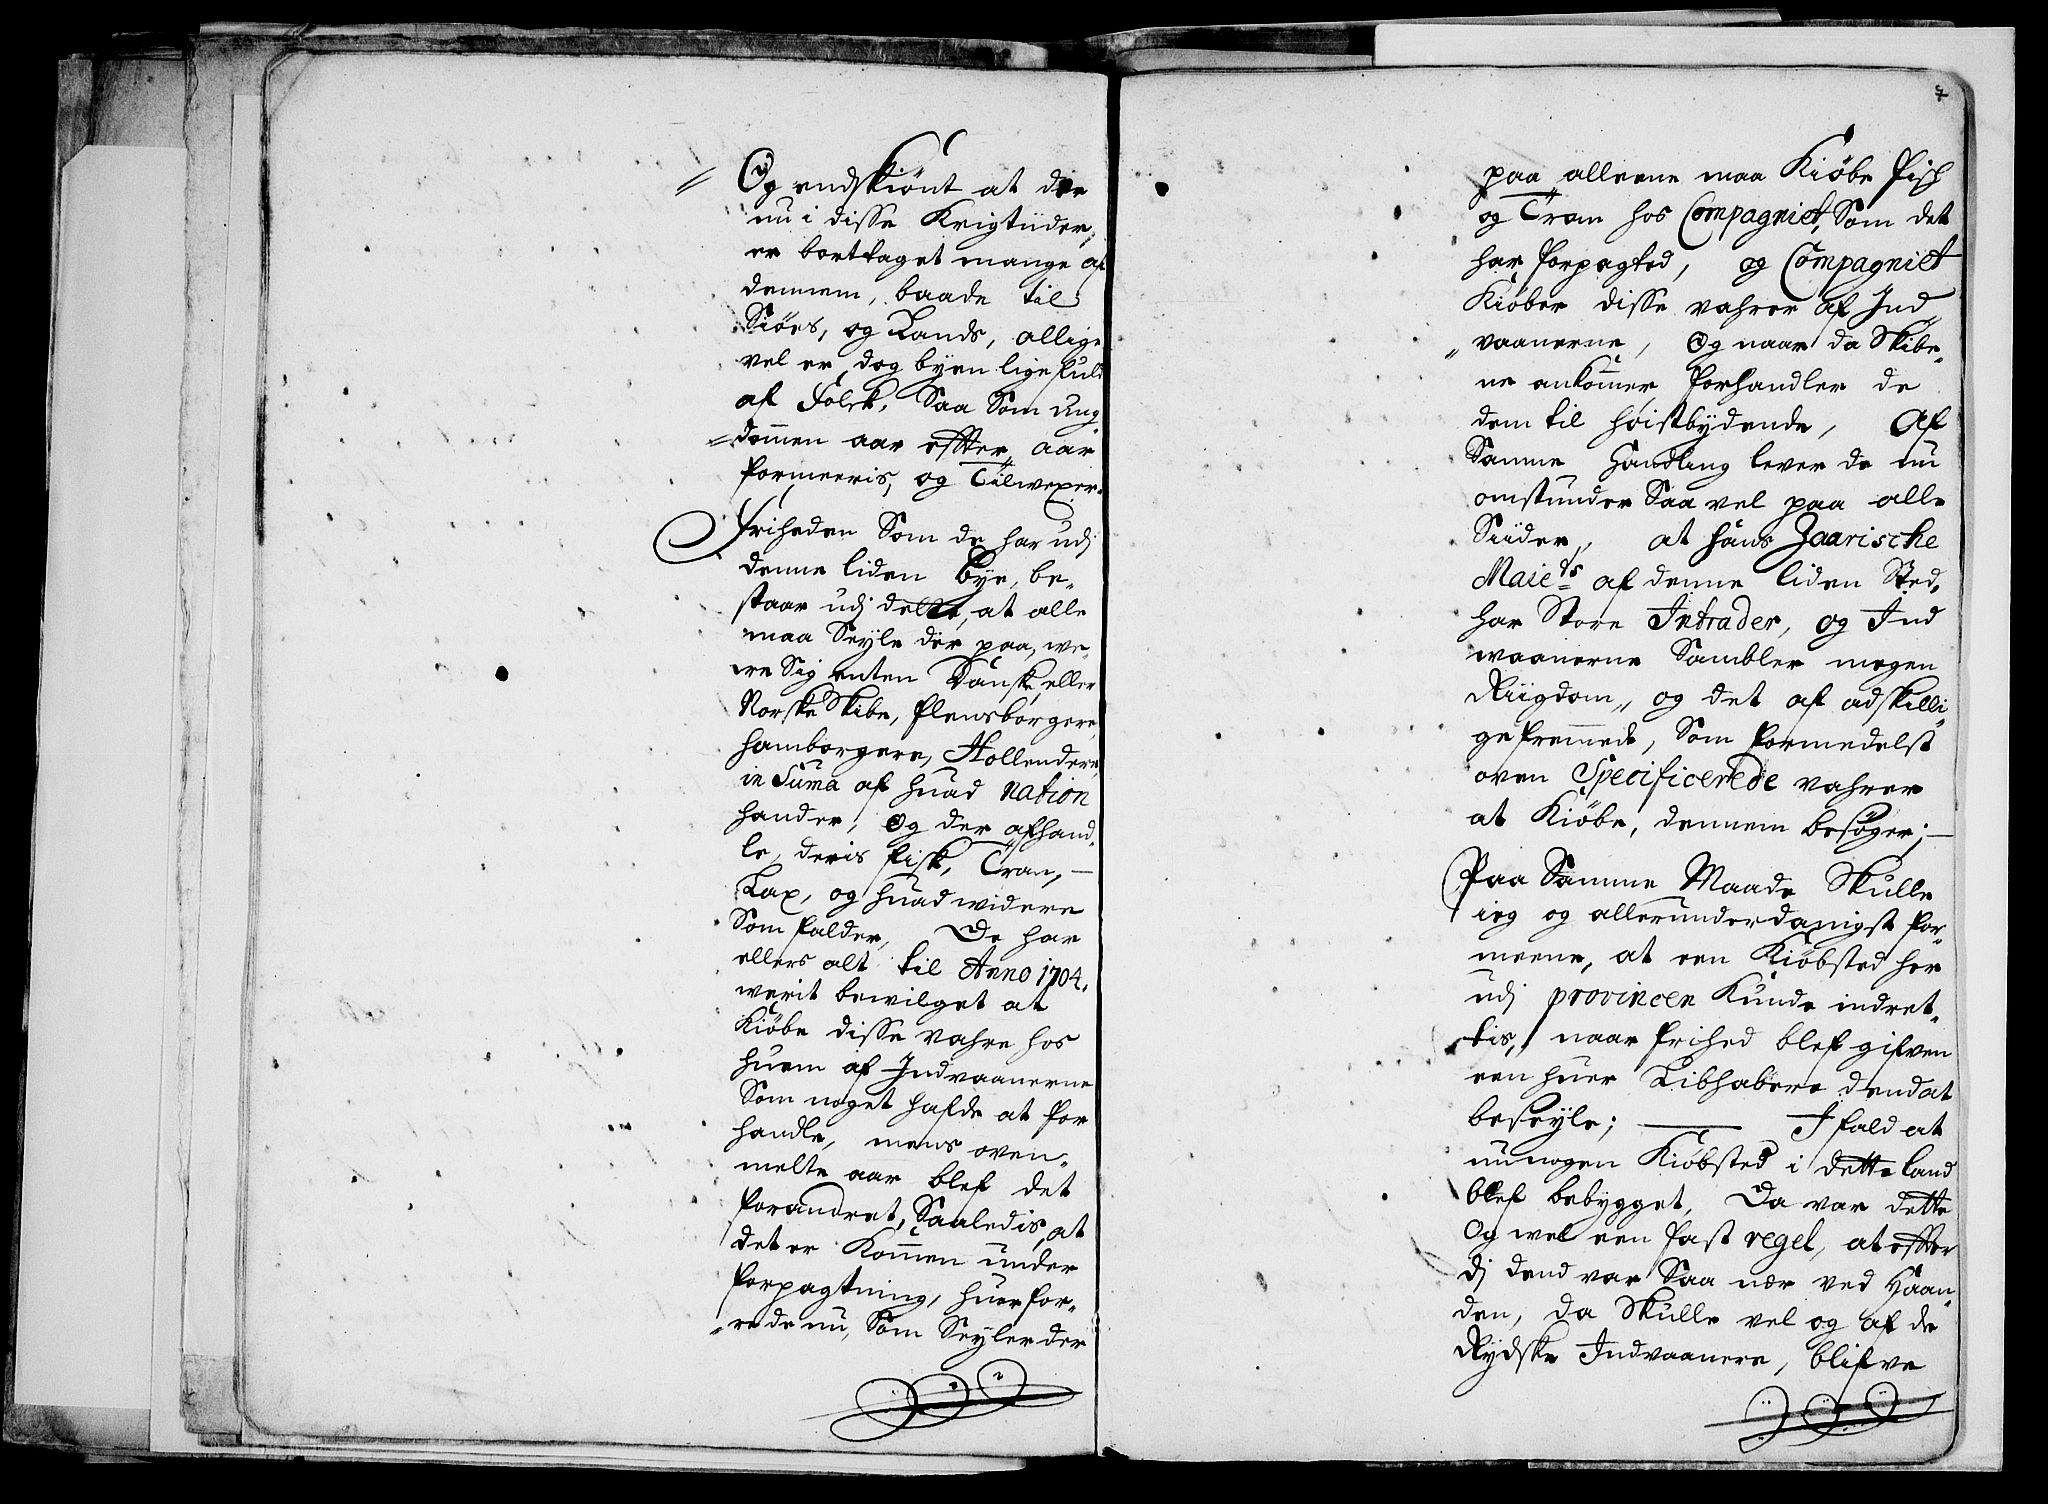 Og endskiönt at der
nu i disse Krigtiider,
er borttaget mange af
dennem, baade til
Siöes, og Lands, allige
vel er dog byen lige fuld
af Folck, Saa Som ung
dommen aar effter aar
formeeris, og Tilwexer.
Friheden Som de har udj
denne liden Bye, be-
staar udj dette, at alle
maa Seyle der paa, we-
ere Sig enten Danske eller
Norske Skibe, flensborgere,
hamborgere, Hollendere,
in Suma af huad nation
hand er, Og der afhand-
le, deris fisk, Tran,
Lax, og huad widere
Som falder, De har
ellers alt til Anno 1704.
werit bewilget at
Kiöbe disse vahre hos
huem af Indvaanerne
Som noget hafde at for
handle, mens oven-
melte aar blef det
forandret, Saaledis, at
det er Kommen under
forpagtning, huorfor-
re de nu, Som Seyler der
7
paa alleene maa Kiöbe fish
og Tran hos Compagniet, Som det
har forpagted, og Compagniet
Kiöber disse vahrer af Ind
vaanerne, Og naar da Skibe-
ne ankommer, forhandler de
dem til høistbydende, Af
Samme Handling lever de nu
omstunder Saa vel paa alle
Siider, at hans Zaarische
Maiets af denne liden Sted,
har Store Intrader, og Ind
waanerne Sambler megen
Riigdom, og det af adskilli-
ge fremmede, Som formedelst
oven Specificerede vahrer
at Kiöbe, dennem besöger;
Paa Samme Maade Skulle
ieg og allerunderdanigst for-
meene, at een Kiöbsted her
udj provincen Kunde indret-
tis, naar frihed blef gifven
een huer Libhabere dend at
beseyle; Ifald at
nu nogen Kiöbsted i dette land
blef bebygget, Da var dette
Og wel een fast regel, at effter
dj dend var Saa nær ved Haan-
den, da Skulle vel og af de
Rydske Indvaanere, blifve